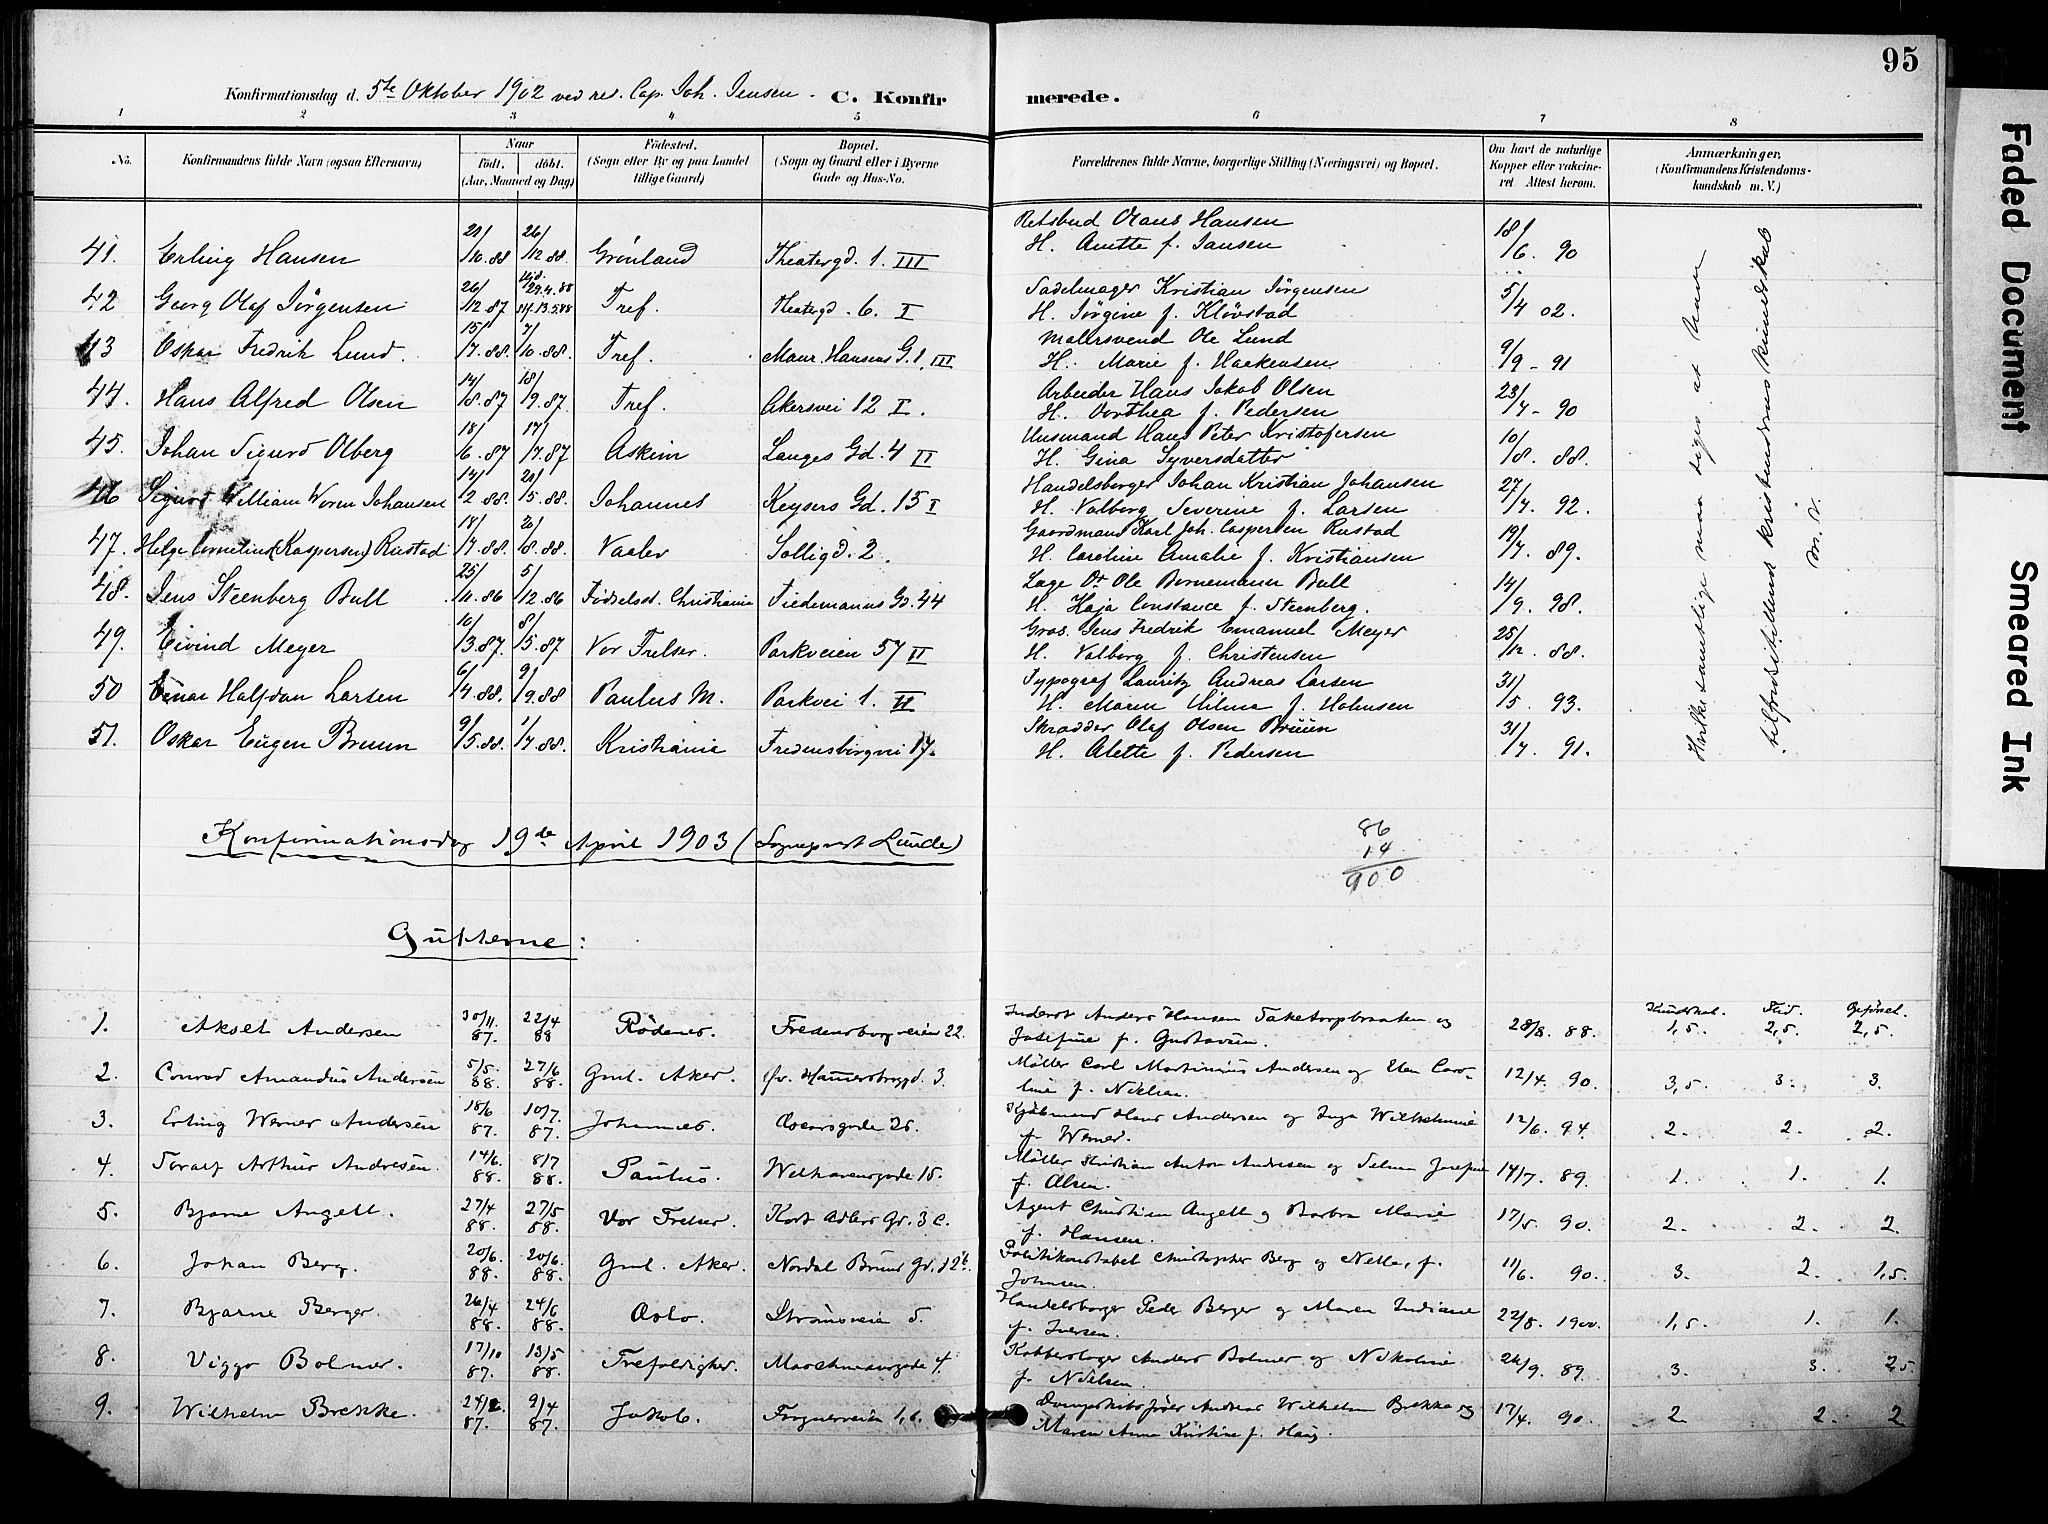 95
Konfirmationsdag d. 5te Oktober 1902 ved res. Cap. Joh. Jensen. C. Konfirmerede.
1 2 3 4 5 6 7 8
No. Konfirmandens fulde Navn (ogsaa Efternavn) Naar Født. døbt. (Aar, Maaned og Dag) Fødested. (Sogn eller By og paa Landet tillige Gaard) Bopæl. (Sogn og Gaard eller i Byerne Gade og Hus-No. Forældrenes fulde Navne, borgerlige Stilling (Næringsvei) og Bopæl. Om havt de naturlige Kopper eller vakcineret Attest herom. Anmærkninger. (Konfirmandens Kristendomskundskab m. V.)
41. Erling Hansen 21/10.88 26/12.88. Grønland Theatergd. 1. III Retsbud Olaus Hansen H. Anette f. Jansen 18/6. 90
42 Georg Olaf Jørgensen 26/12.87 Hjd. 29.4.88 Stf. 13.5.88 Tref. Theatergd. 6. I Sadelmager Kristian Jørgensen H. Jørgine f. Kløvstad 5/4 02.
43 Oskar Fredrik Lund. 15/7.88. 7/10.88. Tref. Maur. Hansens G. 1, III Malersvend Ole Lund H. Marie f. Haekensen 9/9 - 91
44. Hans Alfred Olsen 14/8.87 18/9.87. Tref. Akersvei 12 I. Arbeider Hans Jakob Olsen H. Dorthea f. Pedersen 23/7 - 90
45. Johan Sigurd Olberg 18/6.87 17/7.87 Askim Langes Gd. 4 II Husmand Hans Peter Kristofersen H. Gina Syversdatter 10/8. 88.
46 Sigurd William Woren Johansen 14/2 88. 20/5.88. Johannes Keysers Gd. 15 I Handelsborger Johan Kristian Johansen H. Valborg Severine f. Larsen 27/7 92.
47. Helge Cornelius (Kaspersen) Rustad 18/7.88. 26/8.88. Vaaler Solligd. 2. Gaardmand Karl Joh. Caspersen Rustad H. Caroline Amalie f. Kristiansen 19/7. 89.
48. Jens Steenberg Bull 25/10.86 5/12.86 Fødselsst. Christiania Tiedemanns Gd. 44 Læge Dr Ole Bornemann Bull H. Kaja Constance f. Steenberg. 14/9. 98.
49. Eivind Meyer 10/3.87. 8/5.87 Vor Frelser. Parkveien 57 II Gros. Jens Fredrik Emanuel Meyer H. Valborg f. Christensen 25/12. 88.
50 Einar Halfdan Larsen 6/4.88. 9/9.88 Paulus M. Parkvei 1. II Typograf Lauritz Andreas Larsen H. Maren Hilma f. Halmsen 31/5. 93.
51. Oskar Eugen Bruun 9/5.88. 1/7.88. Kristiania Fredensborgvei 17. Skrædder Olaf Olsen Brüün H. Alette f. Pedersen 31/7 91.
Hvilke samtlige man siges at have tilfredsstillende kristendomskundskab m. v.
Konfirmationsdag 19de April 1903 (Sogneprest Lunde)
86
14
900
Gutterne:
Kundskab. Flid. Opførsel.
1. Aksel Andersen 30/11 87. 22/4 88 Rødenes. Fredensborgveien 22. Inderst Anders Hansen Taketorpbraaten og Josefine f. Gustavsen. 28/8. 88. 1,5. 2,5. 2,5.
2. Conrad Amandus Andersen 5/5 88. 27/6 88. Gml. Aker. Øv. Hammersborggd. 3. Møller Carl Martinius Andersen og Elen Caroline f. Nielsen. 12/4. 90. 3,5. 3. 3.
3. Erling Werner Andersen 18/6 87. 10/7. 87. Johannes. Oscarsgade 26. Kjøbmand Hans Andersen og Inga Wilhelmine f. Werner. 12/6. 94. 2. 2. 2.
4. Toralf Arthur Andresen. 14/6. 88. 8/7 88. Paulus. Welhavensgade 15. Møller Kristian Anton Andresen og Selma Josefine f. Olsen. 14/7. 89. 1. 1. 1.
5. Bjarne Angell. 27/4 88. 27/5 88. Vor Frelser. Kort Adlers Gd. 3 c. Agent Christian Angell og Barbra Marie f. Hansen. 17/5. 90. 2. 2. 2.
6. Johan Berg. 20/6. 88. 20/6. 88. Gml. Aker. Nordal Bruns Gd. 12 b. Politikonstabel Christopher Berg og Nella, f. Johnsen. 11/6. 90. 3. 2. 1,5.
7. Bjarne Berger. 26/4 88. 24/6 88. Oslo. Strømsveien 5. Handelsborger Peder Berger og Maren Indiane f. Iversen. 22/8. 1900. 1,5. 1. 1.
8. Viggo Bolmer. 17/10 87. 13/5 88. Trefoldighet. Maschmannsgade 4. Kobberslager Anders Bolmer og Nikoline f. Nielsen. 26/9. 89. 3. 3. 2,5
9. Wilhelm Brekke. 24/2. 87. 9/4 87. Jakob. Frognerveien 1, c. Dampskibsfører Andreas Wilhelm Brekke og Maren Anna Kristine f. Haug. 17/4. 90. 2. 2. 2
Faded Document
Smeared Ink